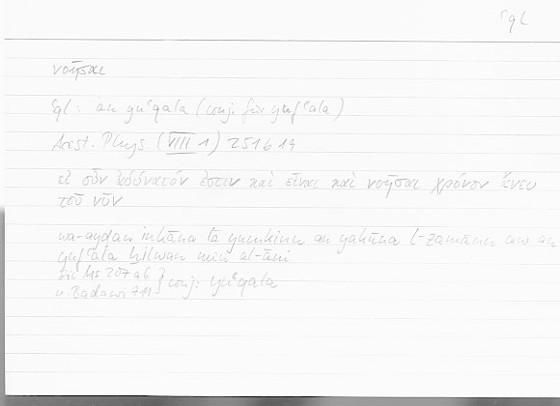 ʿql
νοῆσαι
ʿql: an yuʿqala (conj. für yufʿala)
Arist. Phys. (VIII 1) 251b19
εἰ οὖν ἀδύνατόν ἐστιν καὶ εἶναι καὶ νοῆσαι χρόνον ἄνευ
τοῦ νῦν
wa-ayḍan in kāna lā yumkinu an yakūna l-zamānu aw an
yufʿala ḫilwan min al-āni
Ms 207a6 } conj: yuʿqala
u. Badawi 711